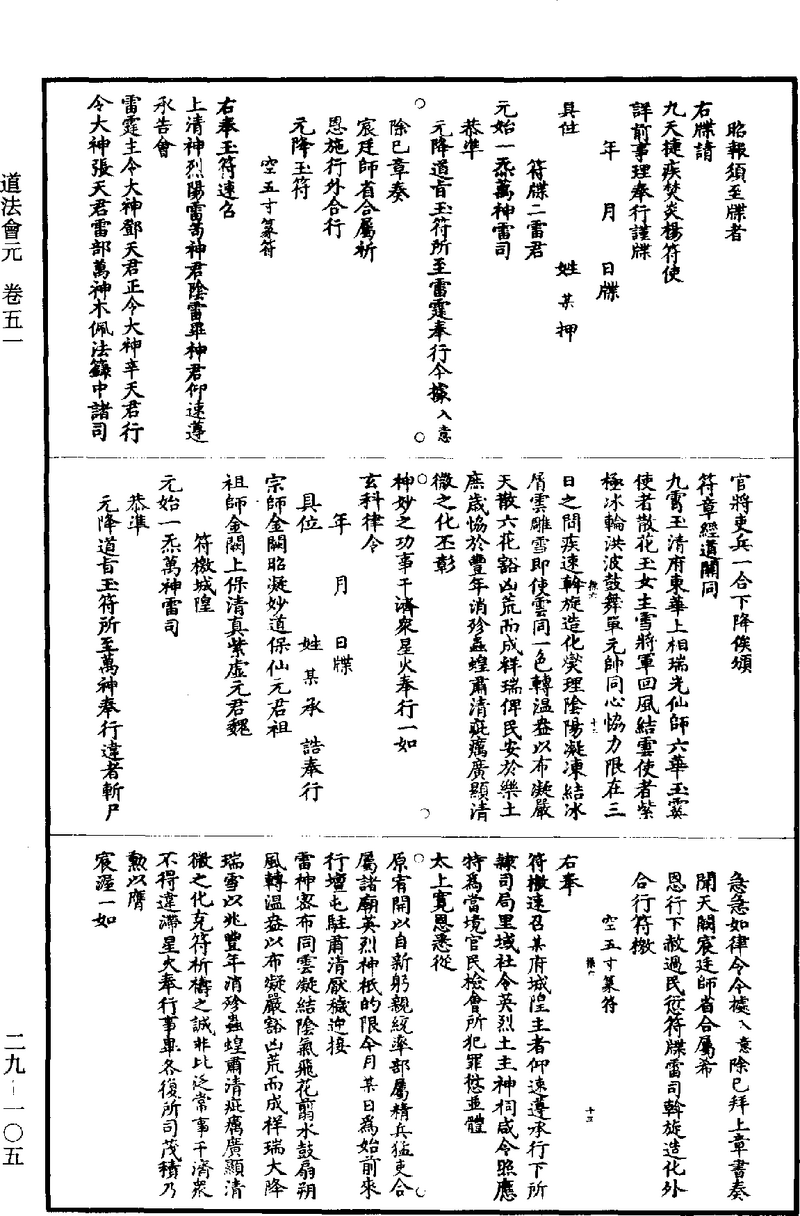 道法會元　卷五一
二九－一〇五
昭報須至牒者
右牒請
九天捷疾焚炎楊符使
詳前事理奉行謹牒
年　月　日牒
具位　姓　某　押
符牒二雷君
元始一炁萬神雷司
恭準
元降道旨玉符所至雷霆奉行今據入意
除已章奏
宸廷師省合屬祈
恩施行外合行
元降玉符
空五寸篆符
右奉玉符速召
上清神烈陽雷苟神君陰雷畢神君仰速遵
承告會
雷霆主令大神鄧天君正令大神辛天君行
令大神張天君雷部萬神本佩法籙中諸司
官將吏兵一合下降俟頒
符章經道關同
九霄玉清府東華上相瑞光仙師六華玉冥
使者散花玉女主雪將軍回風結雲使者紫
極冰輪洪波鼓舞單元帥同心恊力限在三
日之間疾速斡旋造化爕理陰陽凝凍結冰
屑雲雕雪即使雲同一色轉温燠以布凝嚴
天散六花豁凶荒而成祥瑞俾民安於樂土
庶歲恊於豐年消殄蟲蝗肅清疵癘廣顯清
微之化丕彰
神妙之功事干濟衆星火奉行一如
玄科律令
年　月　日牒
具位　姓　某　承　誥奉行
宗師金闕昭凝妙道保仙元君祖
祖師金闕上保清真紫虛元君魏
符檄城隍
元始一炁萬神雷司
恭準
元降道旨玉符所至萬神奉行違者斬尸
急急如律令今據入意除已拜上章書奏
聞天闕宸廷師省合屬希
恩行下赦過民愆符牒雷司斡旋造化外
合行符檄
空五寸篆符
右奉
符檄速召某府城隍主者仰速遵承行下所
隸司局里域社令英烈土主神祠咸令照應
特爲當境官民檢會所犯罪愆並體
太上寬恩悉從
原宥開以自新躬親統率部屬精兵猛吏合
屬諸廟英烈神祇的限今月某日爲始前來
行壇屯駐肅清厭穢迎接
雷神密布同雲凝結陰氣飛花剪水鼓扇朔
風轉温燠以布凝嚴豁凶荒而成祥瑞大降
瑞雪以兆豐年消殄蟲蝗肅清疵癘廣顯清
微之化克符祈禱之誠非比泛常事干濟衆
不得違滯星火奉行事畢各復所司茂積乃
勲以膺
宸渥一如